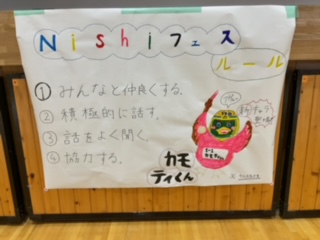 Nishiフェス
ルール
① みんなと仲良くする.
② 積極的に話す.
③ 話をよく聞く.
④ 協力する.
カモ
ティくん